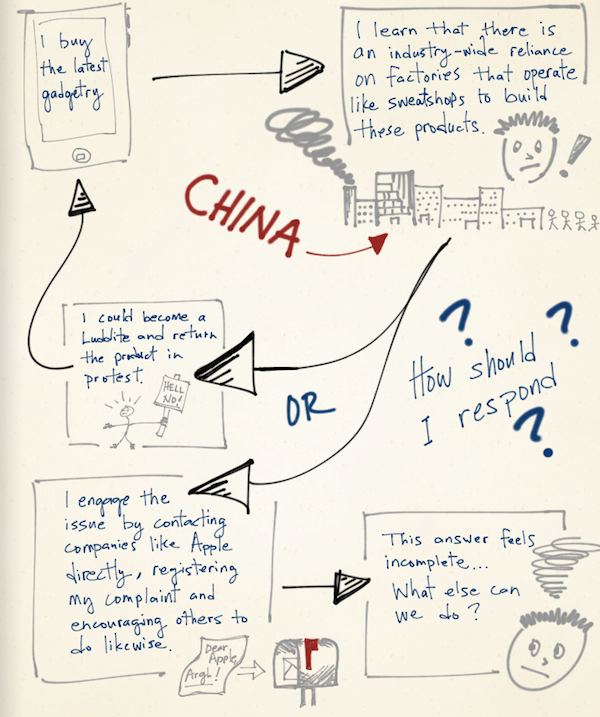 I buy
the latest
gadgetry
I learn that there is
an industry-wide reliance
on factories that operate
like sweatshops to build
these products.
!
CHINA
I could become a
Luddite and return
the product in
protest.
HELL
NO!
OR
? ?
How should
I respond
?
I engage the
issue by contacting
companies like Apple
directly, registering
my complaint and
encouraging others to
do likewise.
Dear
Apple,
Argh!
This answer feels
incomplete...
What else can
we do?